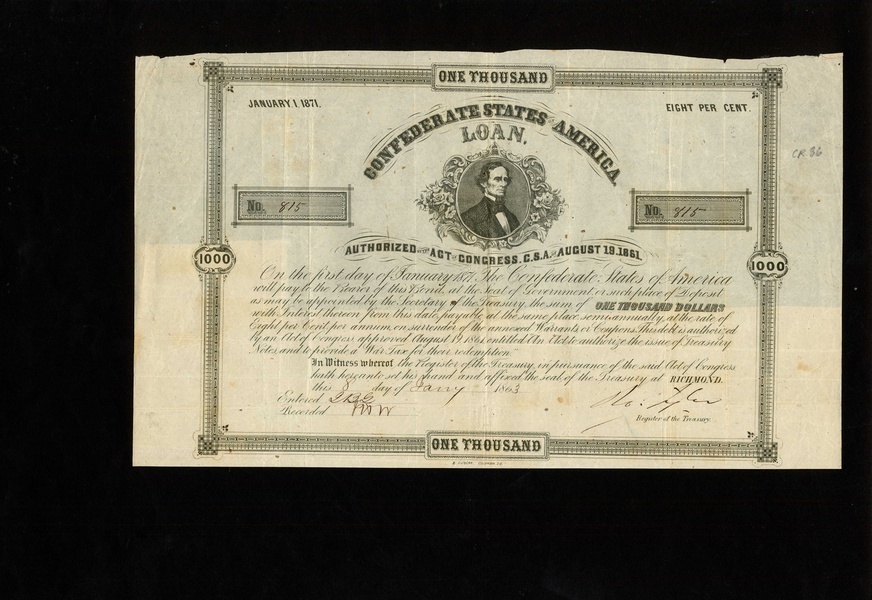 ONE THOUSAND
JANUARY 1, 1871.
EIGHT PER CENT.
CONFEDERATE STATES OF AMERICA.
LOAN.
CR 86
No. 815
No. 815
AUTHORIZED BY THE ACT OF CONGRESS, C.S.A. OF AUGUST 19, 1861.
1000
1000
On the first day of January 1871, The Confederate States of America
will pay to the Bearer of this Bond, at the Seal of Government or such place of Deposit
as may be appointed by the Secretary of the Treasury, the sum of ONE THOUSAND DOLLARS
with Interest thereon from this date, payable at the same place semi-annually, at the rate of
Eight per Cent per annum, on surrender of the annexed Warrants or Coupons. This debt is authorized
by an Act of Congress approved August 19, 1861, entitled An Act to authorize the issue of Treasury
Notes, and to provide a War Tax for their redemption.
In Witness whereof the Register of the Treasury, in pursuance of the said Act of Congress
hath hereunto set his hand, and affixed the seal of the Treasury at RICHMOND.
this 8 day of Jany 1863
Entered
Recorded
Ro. Tyler
Register of the Treasury.
ONE THOUSAND